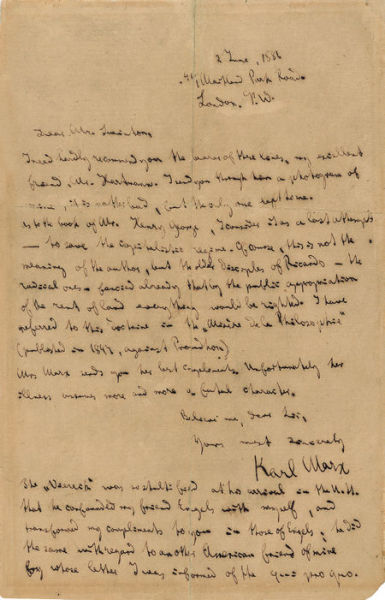 2 June, 1881
41, Maitland Park Road
London. N.W.
Dear Mr. Swinton,
I need hardly recommend you the bearer of these lines, my excellent
friend, Mr. Hartmann. I send you through him a photogram of
mine; it is rather bad, but the only one left to me.
As to the book of Mr. Henry George, I consider it as a last attempt
— to save the capitalistic regime. Of course, this is not the
meaning of the author, but the older disciples of Ricardo — the
radical ones — fancied already that by the public appropriation
of the rent of land everything would be righted. I have
referred to this doctrine in the „Misère de la Philosophie"
(published in 1847, against Proudhon).
Mrs Marx sends you her best compliments. Unfortunately her
illness assumes more and more a fatal character.
Believe me, dear Sir,
Yours most sincerely
Karl Marx
The „Viereck" was so stultified at his arrival in the U. St.
that he confounded my friend Engels with myself, and
transformed my compliments to you in those of Engels; he did
the same with regard to another American friend of mine
by whose letter I was informed of the qui pro quo.